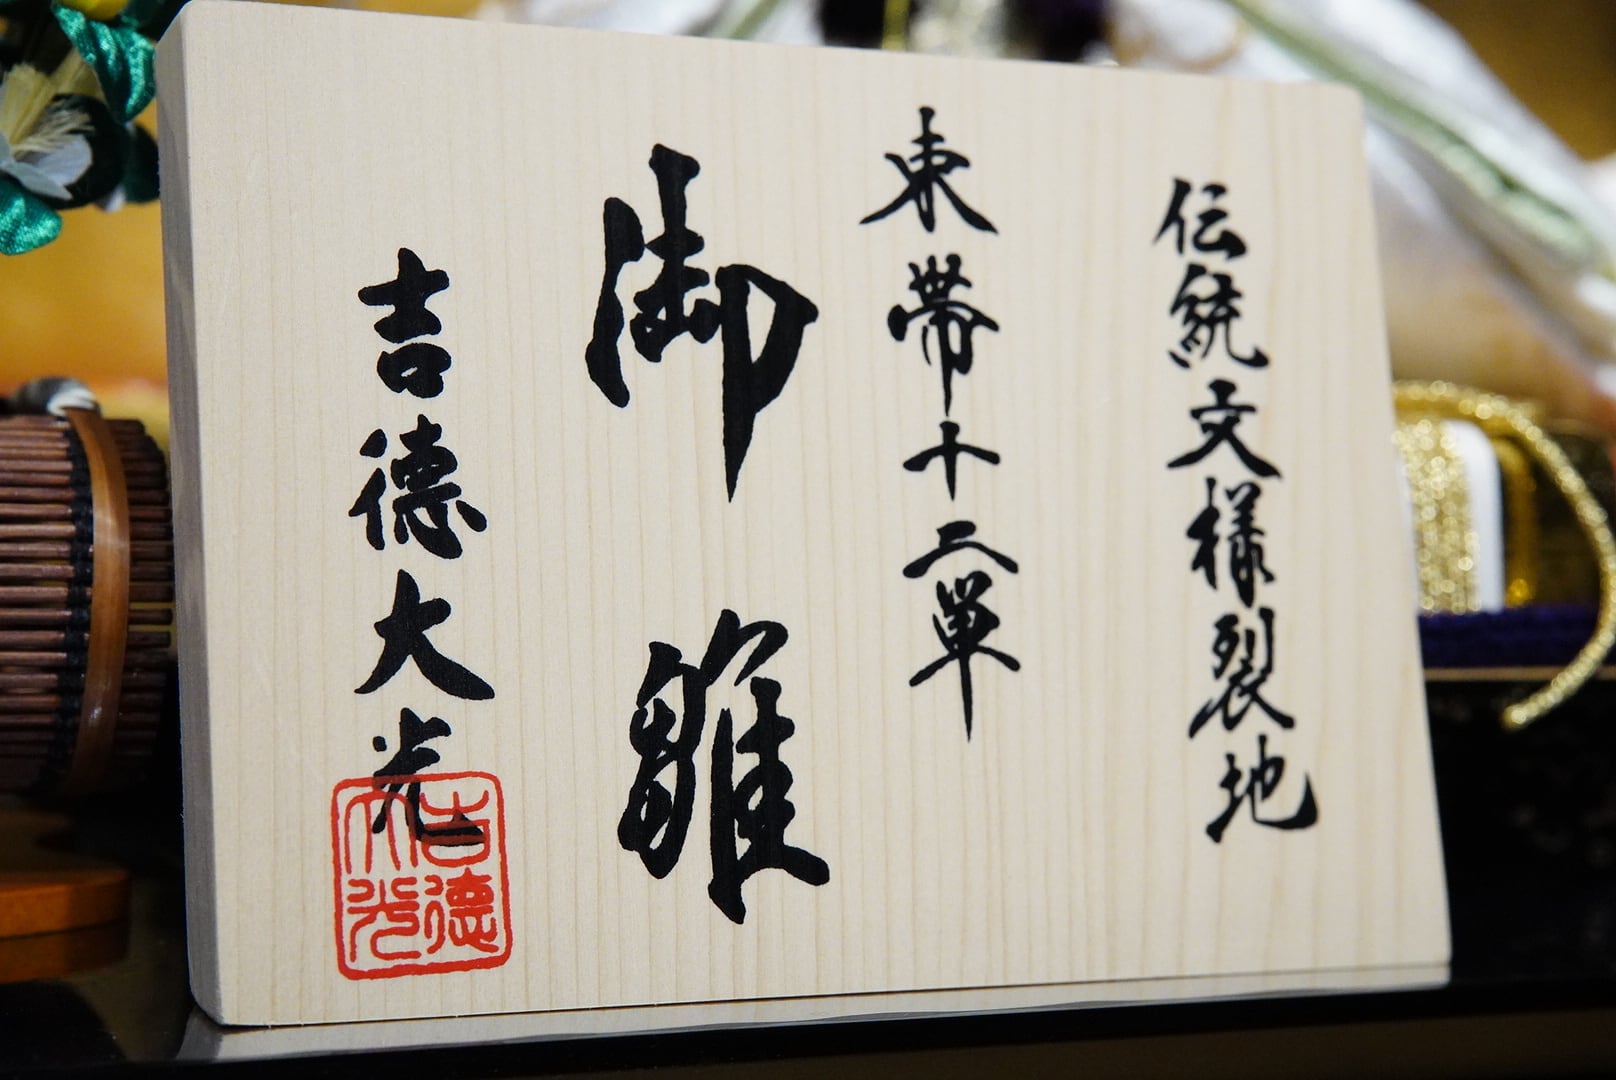 伝統文様裂地
東帯十二単
御雛
吉德大光
吉德大光